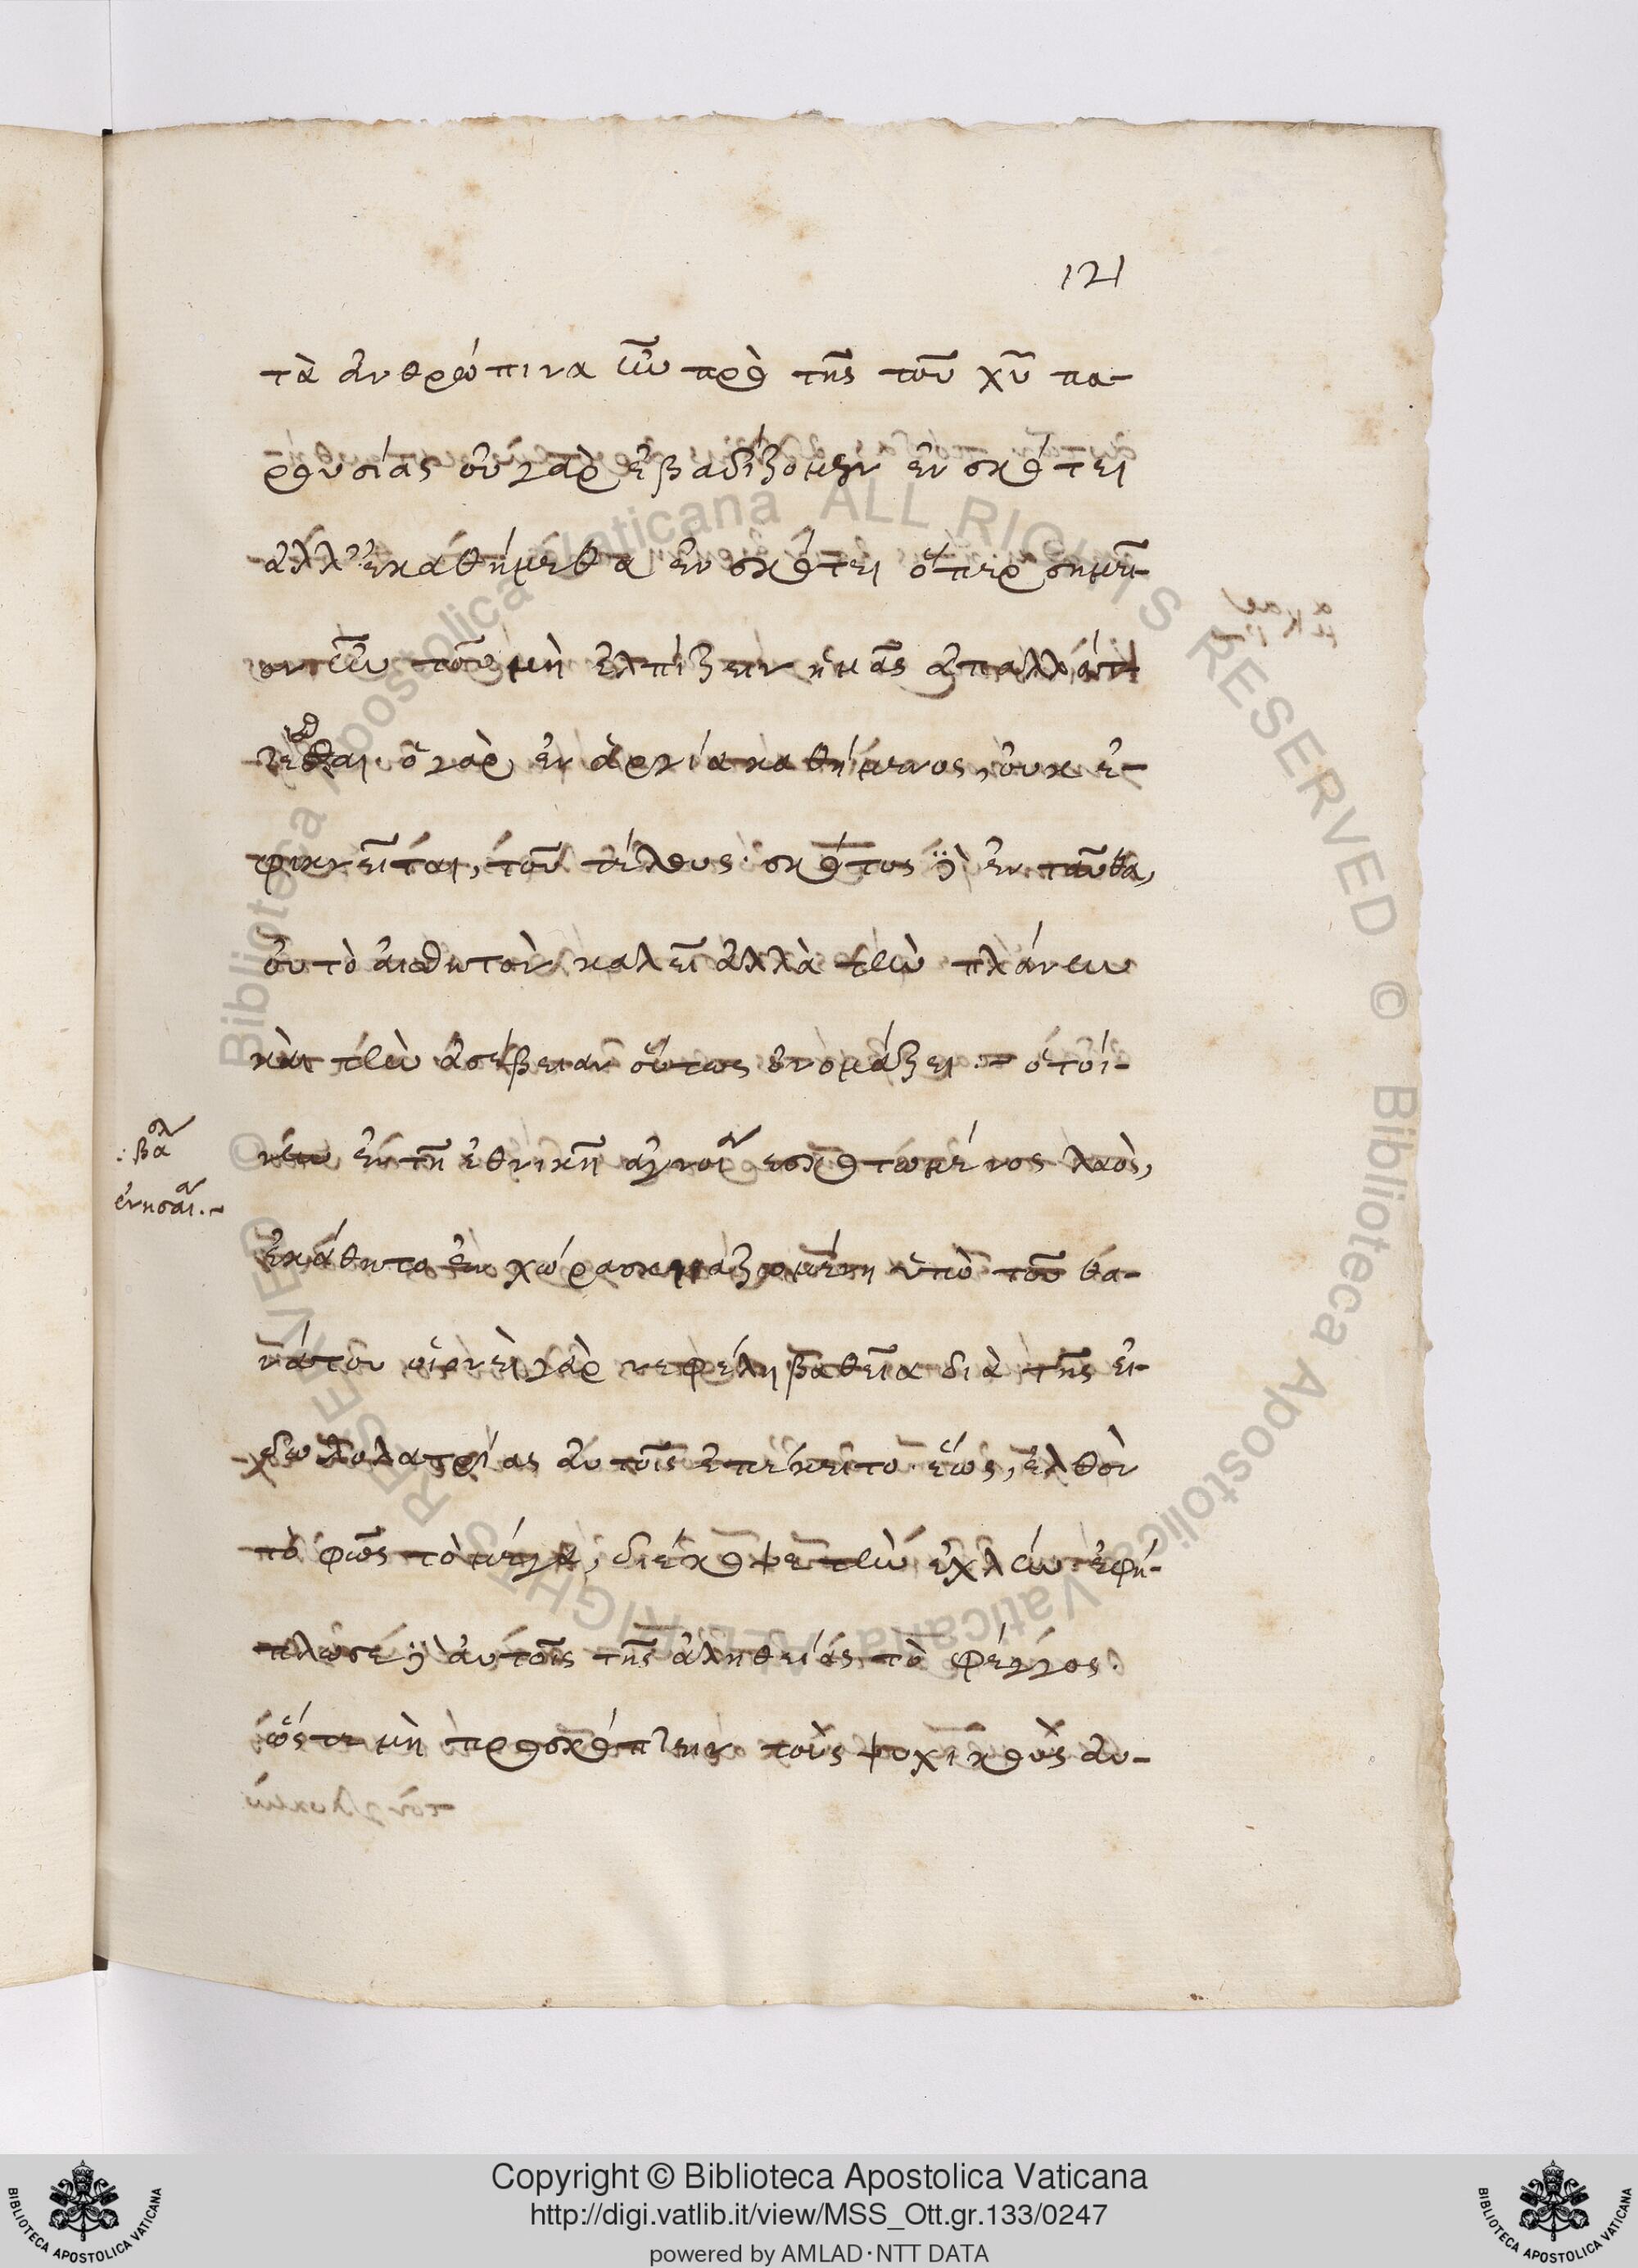 121
τὰ ἀνθρώπινα ἦν πρὸ τῆς τοῦ χῦ πα-
ρουσίας οὐ γὰρ ἐβαδίζομεν ἐν σκότει
ἀλλ' ἐκαθήμεθα ἐν σκότει ὅπερ σημεῖ-
ον ἦν τοῦ μὴ ἐλπίζειν ἡμᾶς ἀπαλλάτ-
τεσθαι. ὁ γὰρ ἐν ἀργία καθήμενος, οὐκ ἐ-
φικνεῖται, τοῦ τέλους. σκότος δὲ ἐνταῦθα,
οὐ τὸ αἰσθητὸν καλεῖ ἀλλὰ τὴν πλάνην
καὶ τὴν ἀσέβειαν οὕτως ὀνομάζει. ὁ τοί-
νυν ἐν τῇ ἐθνικῇ ἀγνοίᾳ ἐσκοτωμένος λαὸς,
ἐκάθητο ἐν χώρα σκιαζομένη ὑπὸ τοῦ θα-
νάτου οἱονεὶ γὰρ νεφέλη βαθεῖα διὰ τῆς εἰ-
δωλολατρίας αὐτοῖς ἐπέκειτο. ἕως, ἐλθὸν
τὸ φῶς τὸ μέγα, διέκοψε τὴν ἀχλὺν ἐφή-
πλωσέ δὲ αὐτοῖς τῆς ἀληθείας τὸ φέγγος.
ὥστε μὴ προσκόπτειν τοὺς ψυχικοὺς αὐ-
Copyright © Biblioteca Apostolica Vaticana
http://digi.vatlib.it/view/MSS_Ott.gr.133/0247
powered by AMLAD・NTT DATA
BIBLIOTECA APOSTOLICA VATICANA
BIBLIOTECA APOSTOLICA VATICANA
© Biblioteca Apostolica Vaticana ALL RIGHTS RESERVED © Biblioteca Apostolica Vaticana ALL RIGHTS RESERVED